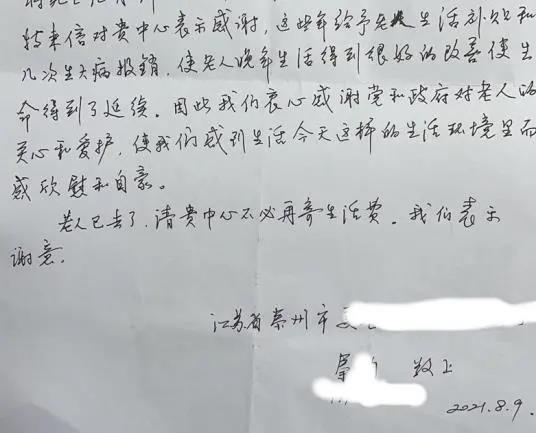 特来信对贵中心表示感谢,这些年给予老人生活补贴和
几次生大病报销,使老人晚年生活得到很好的改善使生
命得到了延续。因此我们衷心感谢党和政府对老人的
关心和爱护,使我们感到生活今天这样的生活环境里而
感欣慰和自豪。
老人已去了,请贵中心不必再寄生活费。我们表示
谢意.
江苏省泰州市
敬上
2021.8.9.